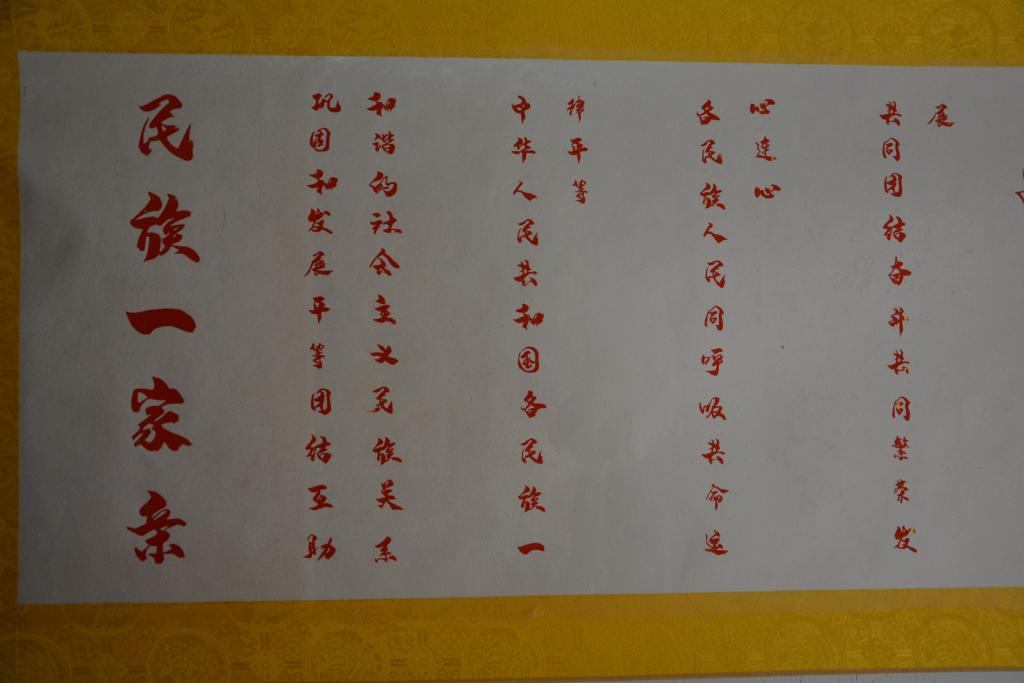 民族一家亲
巩固和发展平等团结互助
和谐的社会主义民族关系
中华人民共和国各民族一
律平等
各民族人民同呼吸共命运
心连心
共同团结奋斗共同繁荣发
展